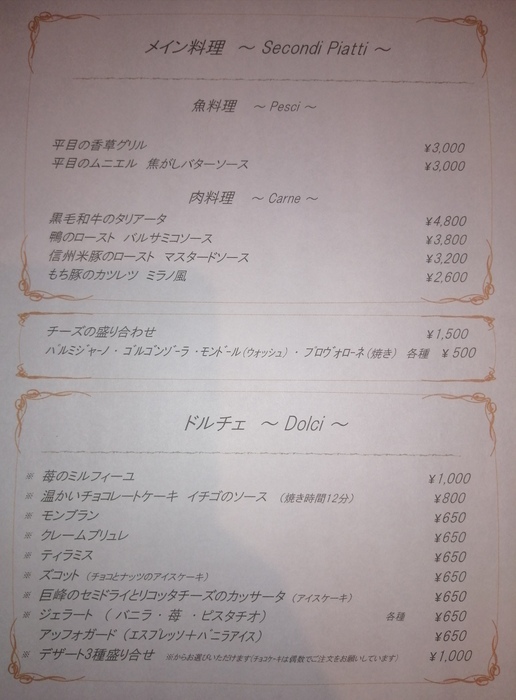 メイン料理　～ Secondi Piatti ～
魚料理　～ Pesci ～
平目の香草グリル　¥3,000
平目のムニエル　焦がしバターソース　¥3,000
肉料理　～ Carne ～
黒毛和牛のタリアータ　¥4,800
鴨のロースト　バルサミコソース　¥3,800
信州米豚のロースト　マスタードソース　¥3,200
もち豚のカツレツ　ミラノ風　¥2,600
チーズの盛り合わせ　¥1,500
ﾊﾟﾙﾐｼﾞｬｰﾉ・ｺﾞﾙｺﾞﾝｿﾞｰﾗ・ﾓﾝﾄﾞｰﾙ(ｳｫｯｼｭ)・ﾌﾟﾛｳﾞｫﾛｰﾈ(焼き)　各種　¥500
ドルチェ　～ Dolci ～
※ 苺のミルフィーユ　¥1,000
※ 温かいチョコレートケーキ　イチゴのソース　（焼き時間12分）　¥800
※ モンブラン　¥650
※ クレームブリュレ　¥650
※ ティラミス　¥650
※ ズコット（チョコとナッツのアイスケーキ）　¥650
※ 巨峰のセミドライとリコッタチーズのカッサータ（アイスケーキ）　¥650
※ ジェラート　（ バニラ・苺 ・ピスタチオ）　各種　¥650
アッフォガード（エスプレッソ＋ﾊﾞﾆﾗアイス）　¥650
※ デザート3種盛り合せ　※からお選びいただけます(チョコケーキは偶数でご注文をお願いしています)　¥1,000